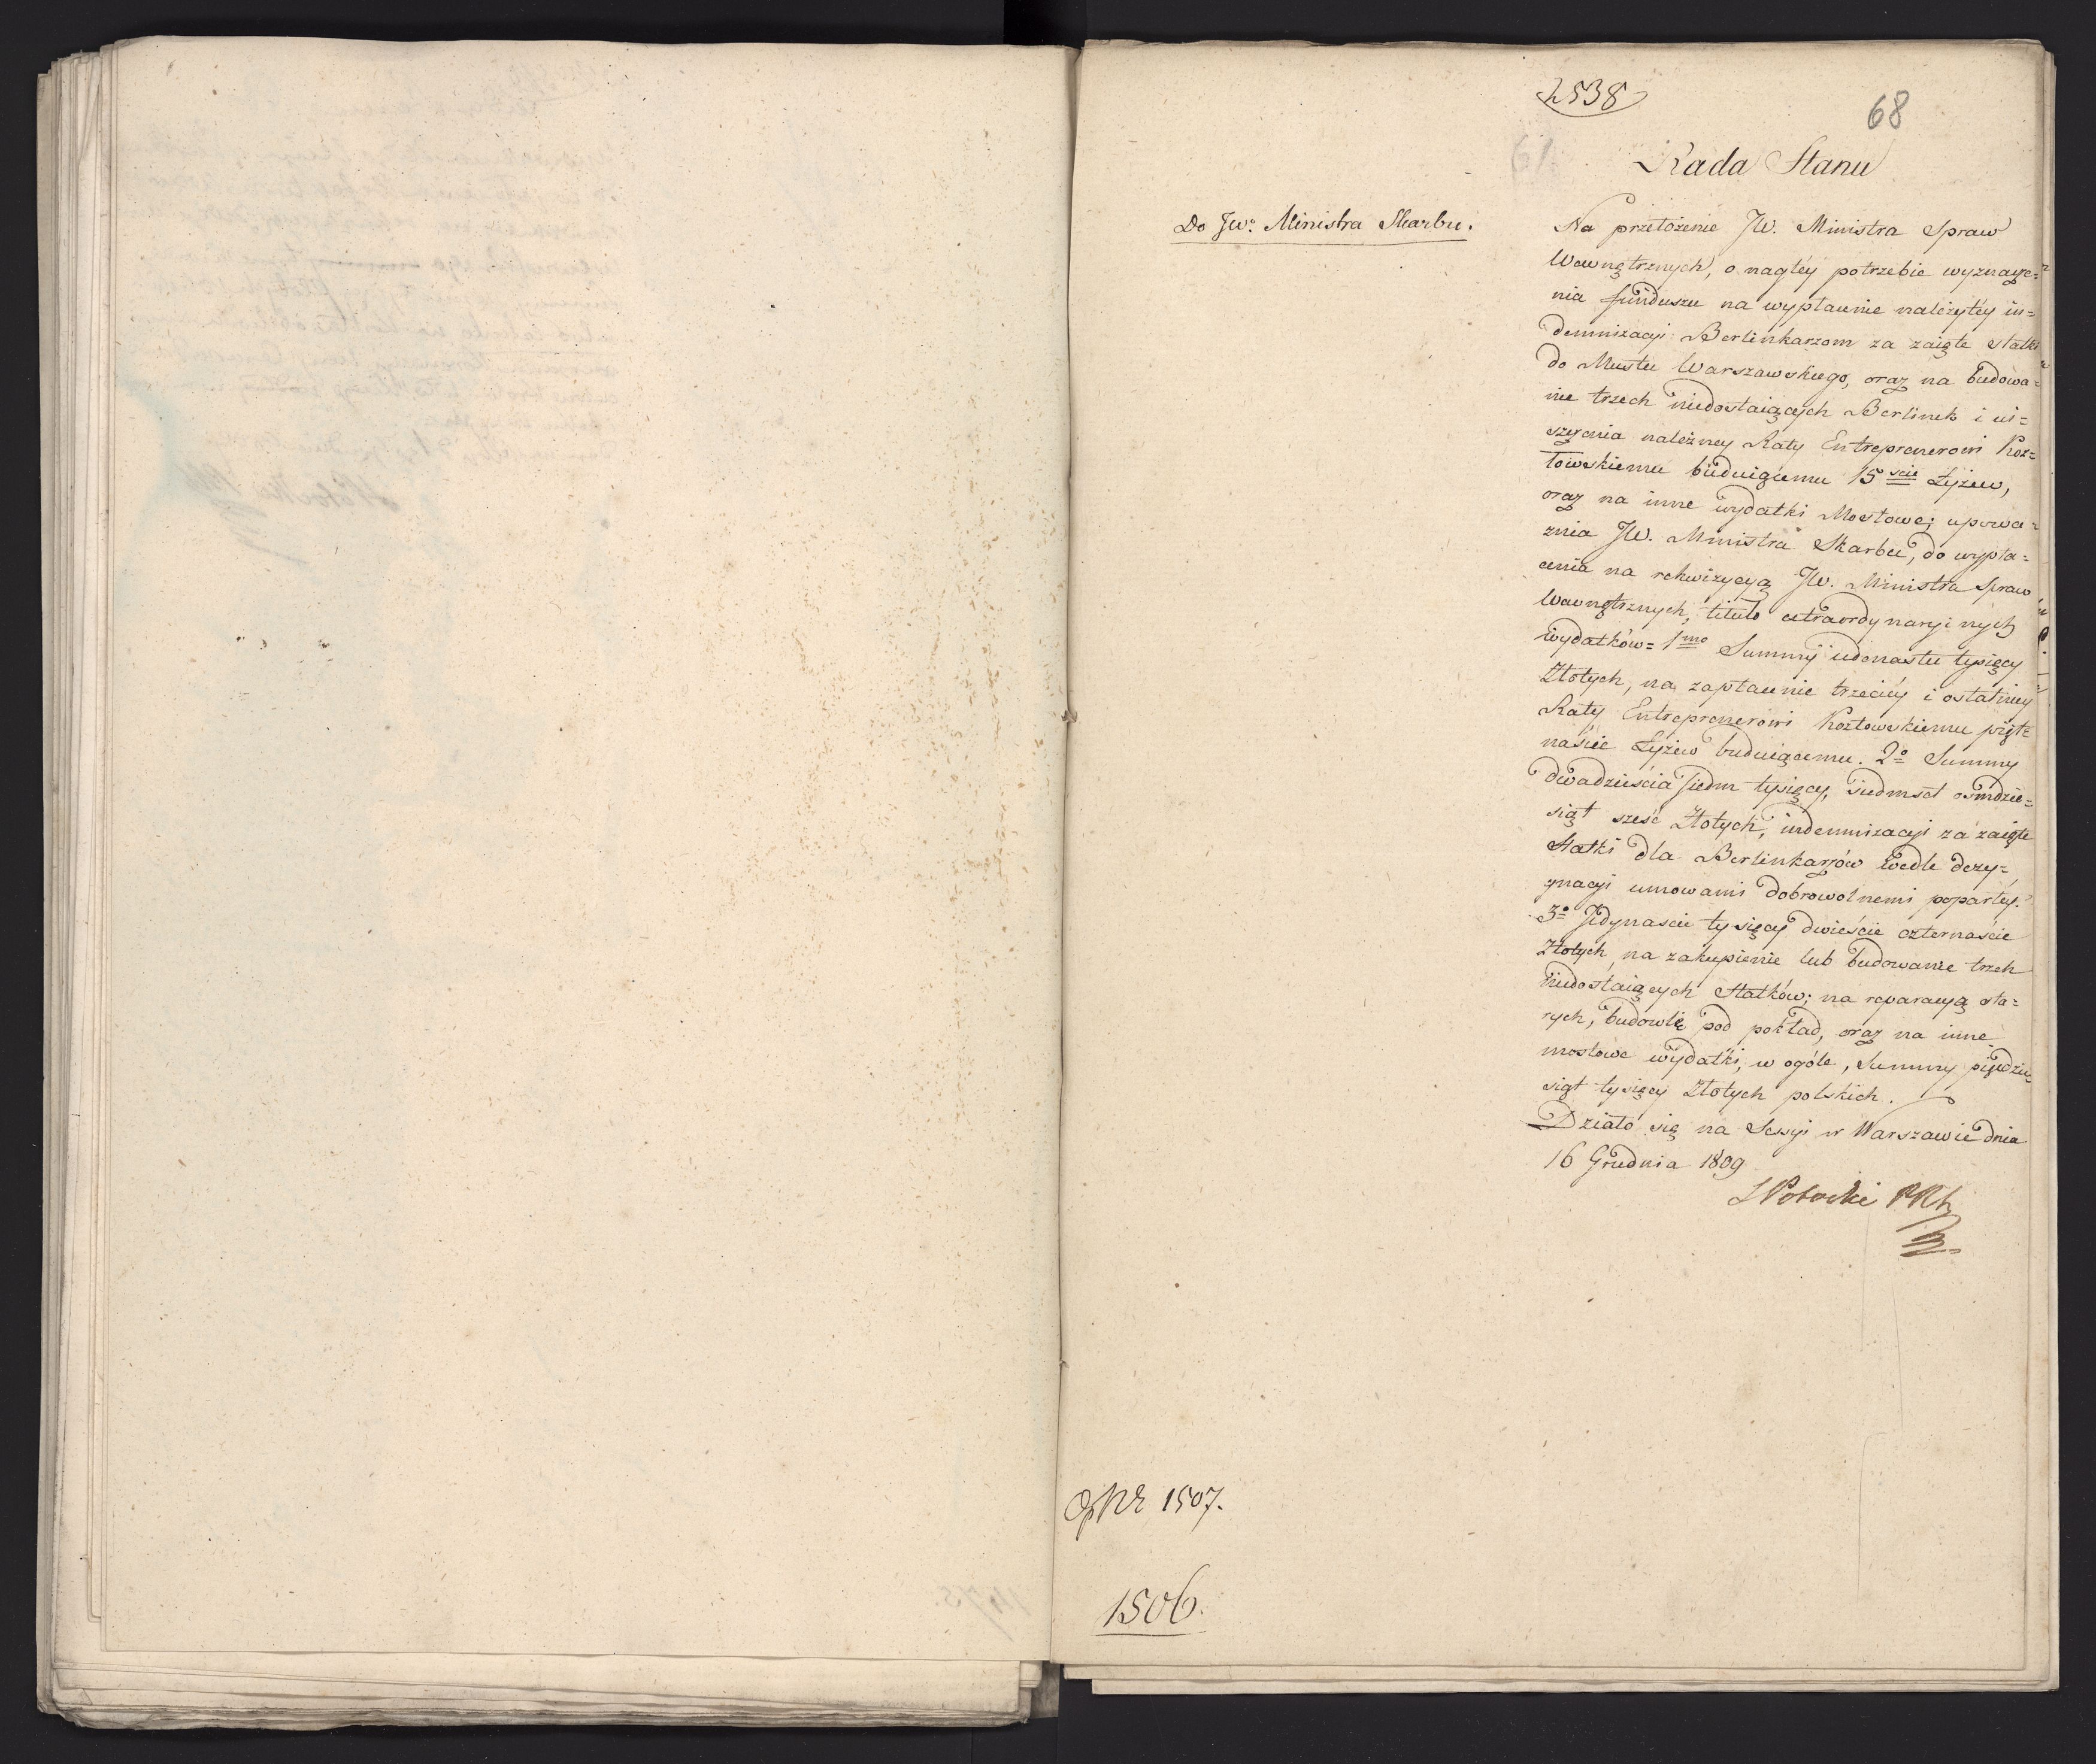 2538
68
61
Rada Stanu
Do JW: Ministra Skarbu.
Na przełożenie JW. Ministra Spraw
Wewnętrznych, o nagłéy potrzebie wyznacze=
nia funduszu na wypłacenie należytéy in=
demnizacyi Berlinkarzom za zaięte statki
do Mostu Warszawskiego, oraz na budowa=
nie trzech niedostaiących Berlinek i ui=
szczenia należney Raty Entreprenerowi Koz=
łowskiemu buduiącemu 15scie Łyżew,
oraz na inne wydatki Mostowe; upowa=
żnia JW. Ministra Skarbu, do wypła=
cenia na rekwizycyą JW. Ministra Spraw
Wewnętrznych, titulo extraordynaryinych
wydatków= 1mo Summy iedenastu tysięcy
Złotych, na zapłacenie trzeciéy i ostatniey
Raty Entreprenerowi Kozłowskiemu pięt=
naście Łyżew buduiącemu. 2o Summy
dwadzieścia siedm tysięcy, siedmset osmdzie=
siąt sześć Złotych, indemnizacyi za zaięte
statki dla Berlinkarzów wedle dezy=
gnacyi umowami dobrowolnemi popartéy.
3o Jedynaście tysięcy dwieście czternaście
Złotych, na zakupienie lub budowanie trzech
niedostaiących statków; na reparacyą sta=
rych, budowlę pod pokład, oraz na inne
mostowe wydatki, w ogóle, Summy pięćdzie=
siąt tysięcy Złotych polskich.
Działo się na Sessyi w Warszawie dnia
16 Grudnia 1809
S Potocki PRS
1507.
1506.